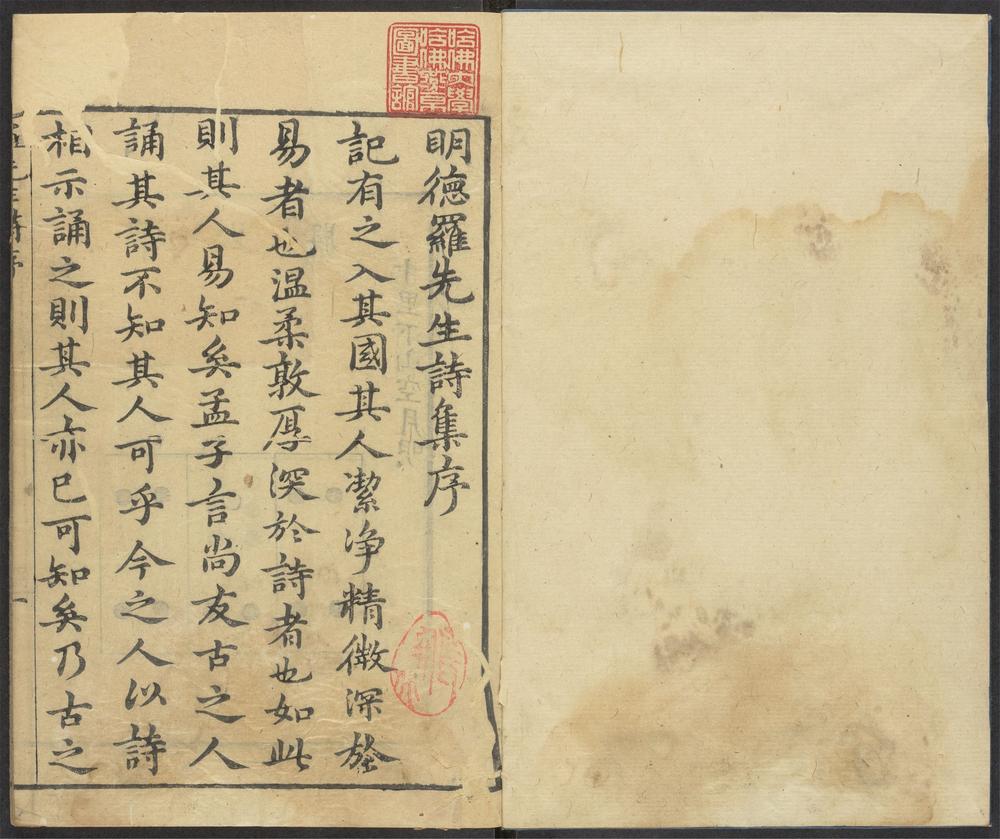 明德羅先生詩集序
記有之入其國其人潔淨精微深於
易者也温柔敦厚深於詩者也如此
則其人易知矣孟子言尚友古之人
誦其詩不知其人可乎今之人以詩
相示誦之則其人亦已可知矣乃古之
哈佛大學
哈佛燕京
圖書館